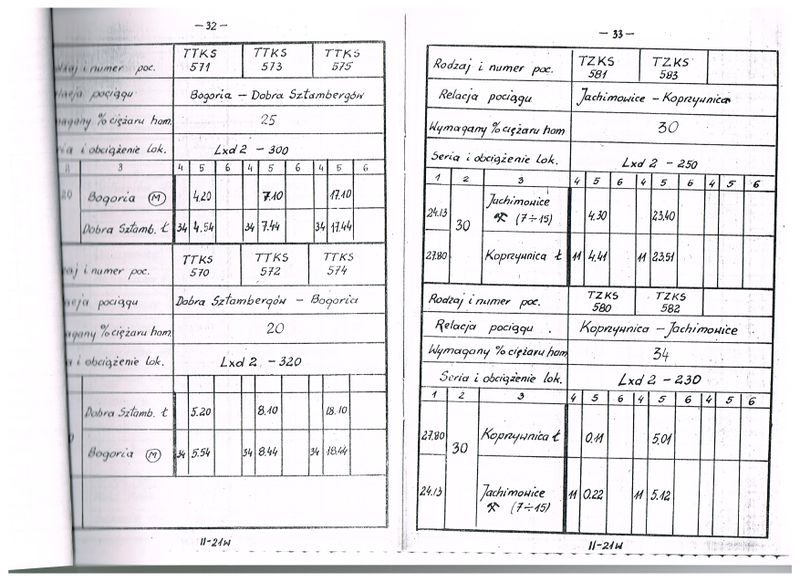 – 32 –
TTKS TTKS TTKS
i numer poc. 571 573 575
pociągu Bogoria – Dobra Sztambergów
% ciężaru ham. 25
i obciążenie lok. Lxd 2 – 300
3 4 5 6 4 5 6 4 5 6
Bogoria (M) 4.20 7.10 17.10
Dobra Sztamb. Ł 34 4.54 34 7.44 34 17.44
TTKS TTKS TTKS
i numer poc. 570 572 574
pociągu Dobra Sztambergów – Bogoria
% ciężaru ham. 20
i obciążenie lok. Lxd 2 – 320
Dobra Sztamb. Ł 5.20 8.10 18.10
Bogoria (M) 34 5.54 34 8.44 34 18.44
II-21W
– 33 –
Rodzaj i numer poc. TZKS TZKS
581 583
Relacja pociągu Jachimowice – Koprzywnica
Wymagany % ciężaru ham 30
Seria i obciążenie lok. Lxd 2 – 250
1 2 3 4 5 6 4 5 6 4 5 6
Jachimowice
24.13 ⚒ (7÷15) 4.30 23.40
30
27.80 Koprzywnica Ł 11 4.41 11 23.51
Rodzaj i numer poc. TZKS TZKS
580 582
Relacja pociągu . Koprzywnica – Jachimowice
Wymagany % ciężaru ham 34
Seria i obciążenie lok. Lxd 2 – 230
1 2 3 4 5 6 4 5 6 4 5 6
27.80 Koprzywnica Ł 0.11 5.01
30
24.13 Jachimowice 11 0.22 11 5.12
⚒ (7÷15)
II-21W